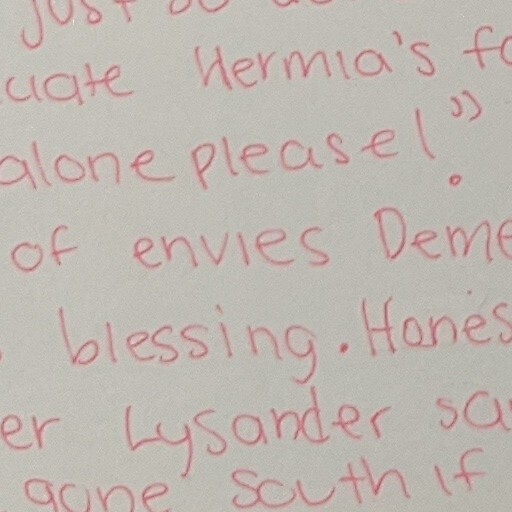 just
uate Hermia's fo
alone please!"
of envies Deme
blessing. Hones
er Lysander sa
gone south if